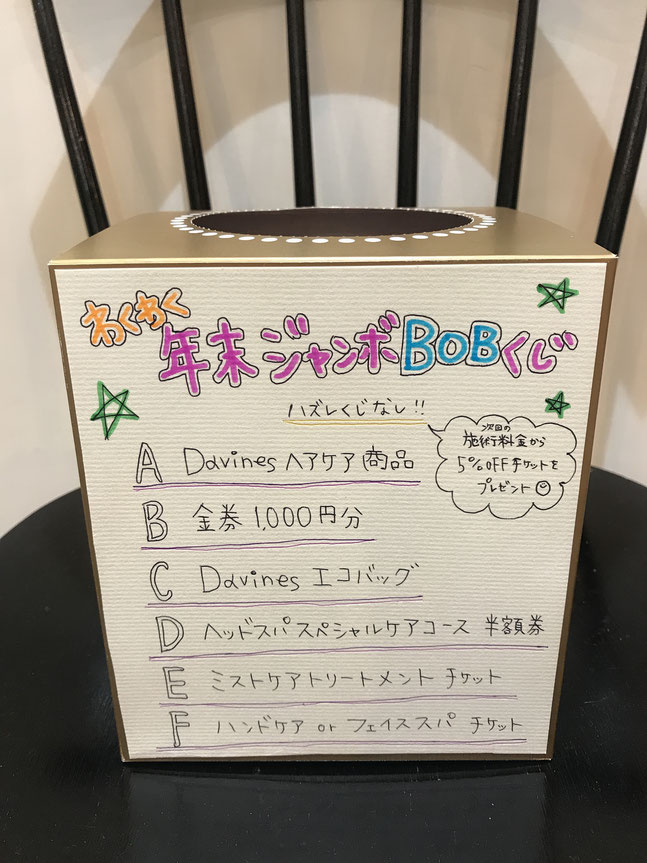 わくわく
年末ジャンボBOBくじ
ハズレくじなし!!
次回の
施術料金から
5%OFFチケットを
プレゼント
A Davines ヘアケア商品
B 金券 1,000円分
C Davines エコバッグ
D ヘッドスパスペシャルケアコース 半額券
E ミストケアトリートメント チケット
F ハンドケア or フェイススパ チケット